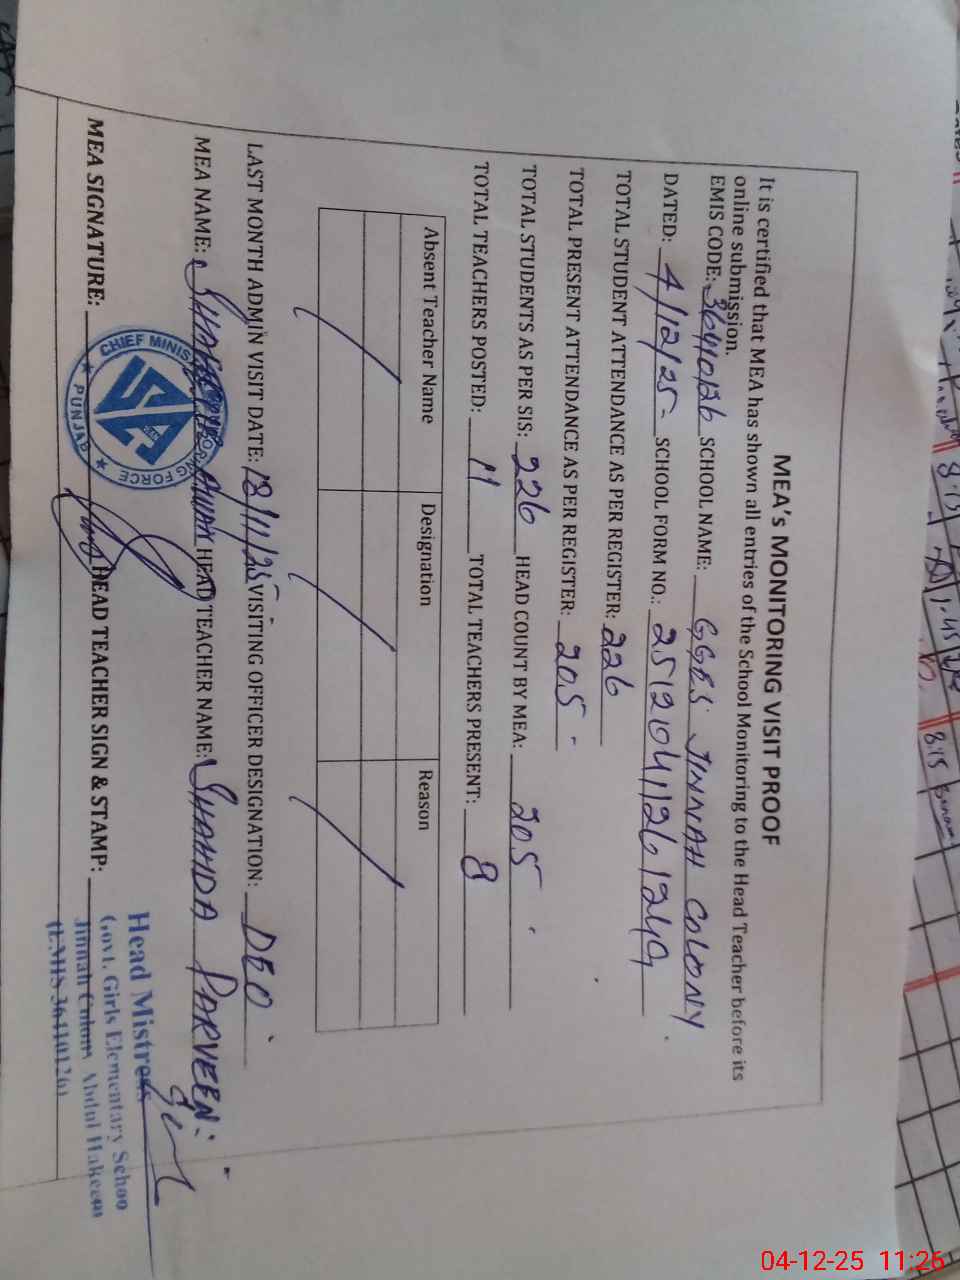 MEA's MONITORING VISIT PROOF
It is certified that MEA has shown all entries of the School Monitoring to the Head Teacher before its
online submission.
EMIS CODE: 36410126 SCHOOL NAME: GGES JINNAH COLONY.
DATED: 4/12/25- SCHOOL FORM NO.: 25120411261249
TOTAL STUDENT ATTENDANCE AS PER REGISTER: 226
TOTAL PRESENT ATTENDANCE AS PER REGISTER: 205-
TOTAL STUDENTS AS PER SIS: 226 HEAD COUNT BY MEA: 205
TOTAL TEACHERS POSTED: 11 TOTAL TEACHERS PRESENT: 8
Absent Teacher Name Designation Reason
LAST MONTH ADMIN VISIT DATE: 13/11/25 VISITING OFFICER DESIGNATION: DEO
MEA NAME: AWAN HEAD TEACHER NAME: SHAHIDA PARVEEN.
MEA SIGNATURE: HEAD TEACHER SIGN & STAMP:
CHIEF MINIS
ORING FORCE
PUNJAB
Head Mistress
Govt. Girls Elementary Schoo
Jinnah Colony Abdul Hakeem
(EMIS 36410126)
8:15
04-12-25 11:26